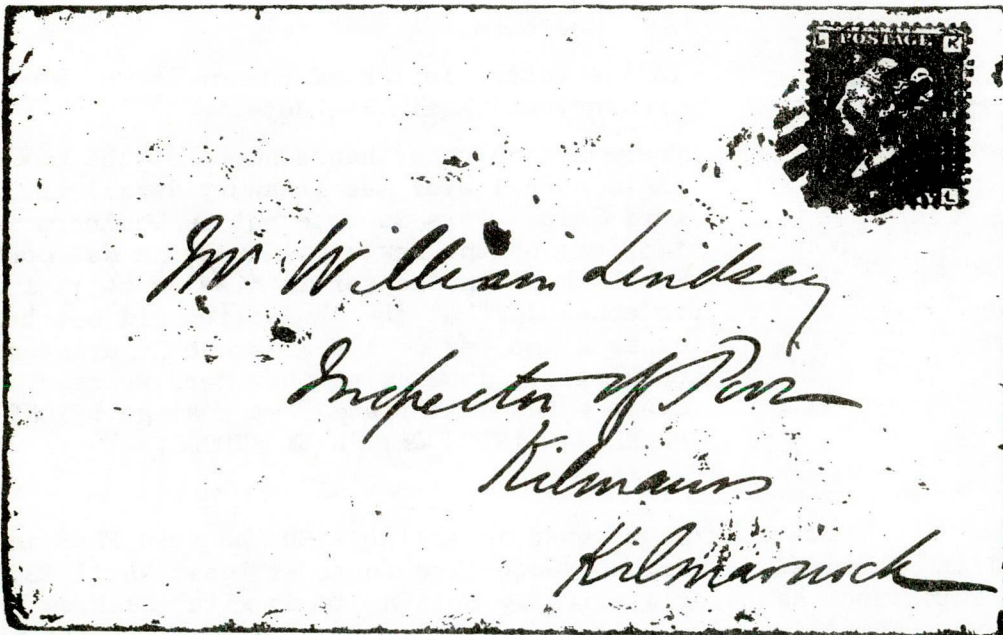 POSTAGE
Mr William Lindsay
Inspector of Poor
Kilmaurs
Kilmarnock